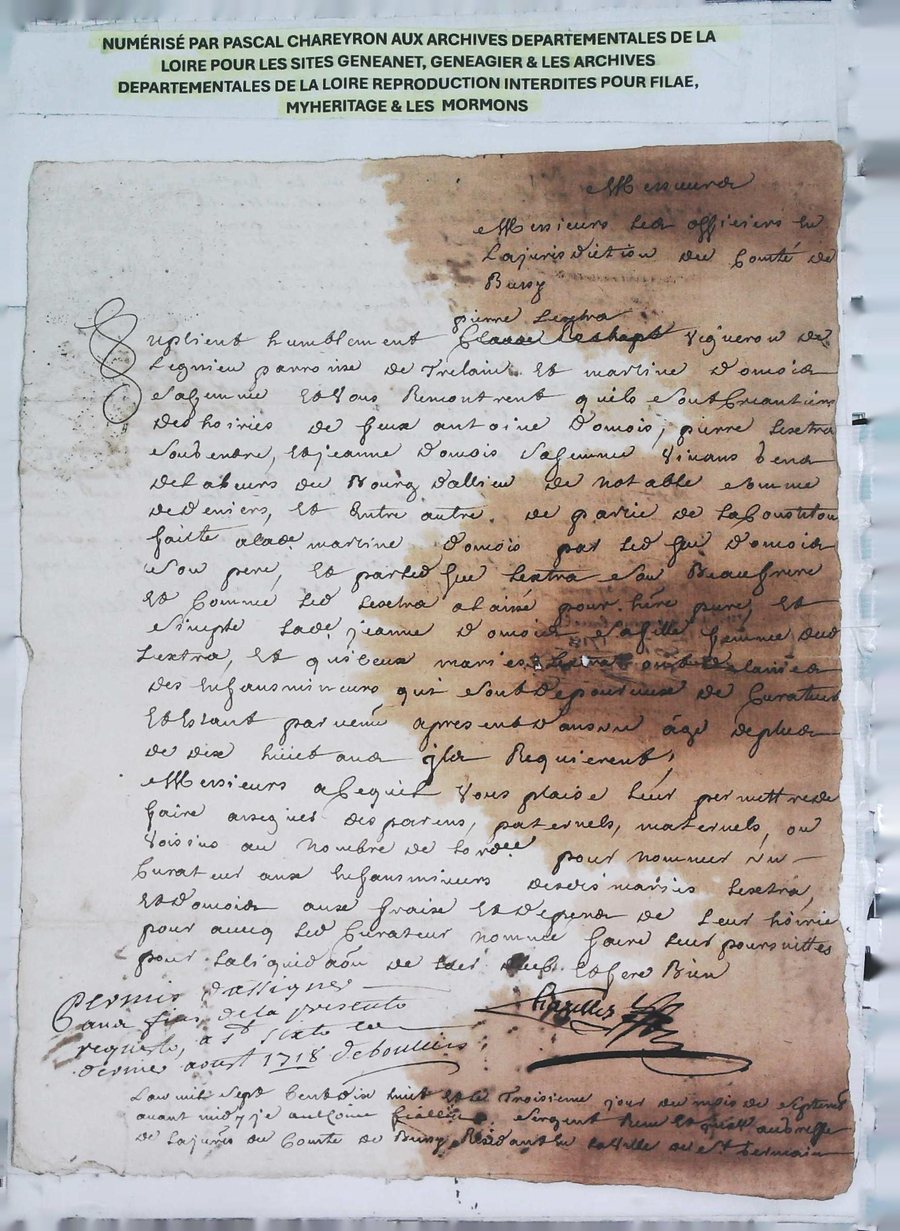 NUMÉRISÉ PAR PASCAL CHAREYRON AUX ARCHIVES DEPARTEMENTALES DE LA
LOIRE POUR LES SITES GENEANET, GENEAGIER & LES ARCHIVES
DEPARTEMENTALES DE LA LOIRE REPRODUCTION INTERDITES POUR FILAE,
MYHERITAGE & LES MORMONS
Messieurs les officiers en
La jurisdiction du Comté de
Bussy
pierre Lextra
Suplient humblement vigneron de
Legnieu parroisse de Trelain Et martine Domois
sa femme Et Vous Remontrent quils sont Creantiers
des hoiries de feux antoine Domois, pierre Lextra
son gendre, Et jeanne Domois sa femme Vivans
du Bourg dallieu de notable somme
de deniers, Et Entre autre de partie de La Constitôn
faitte a lade martine Domois par led feu Domois
son pere, Et par led feu Lextra son Beaufrere
Et Comme led Lextra a laisse pour here pure Et
simple lade jeanne Domois sa fille femme dud
Lextra, Et quiceux maries ont delaisses
des Enfans mineurs qui sont depourveus de Curateur
Et Estant parvenu a present dans un âge de plus
de dix huict ans jls Requierent,
Messieurs a Ce quil Vous plaise Leur permettre de
faire assigner des parens, paternels, maternels, ou
voisins au nombre de Lordce pour nommer un
Curateur aux Enfans mineurs desdis maries Lextra
Et Domois aux fraix Et depens de Leur hoirie
pour avecq led Curateur nommé faire Leur poursuittes
pour la liquidaôn de Et fere Bien
Permis dassigner
aux fins de la presente
requeste, a St Sixte Ce
dernier aoust 1718
Lan mil sept Cent dix huit Et le Troisieme jour du mois de septembre
avant midy je anthoine sergent
de la jurôn du Comté de Bussy Residant En la Ville de St Germain